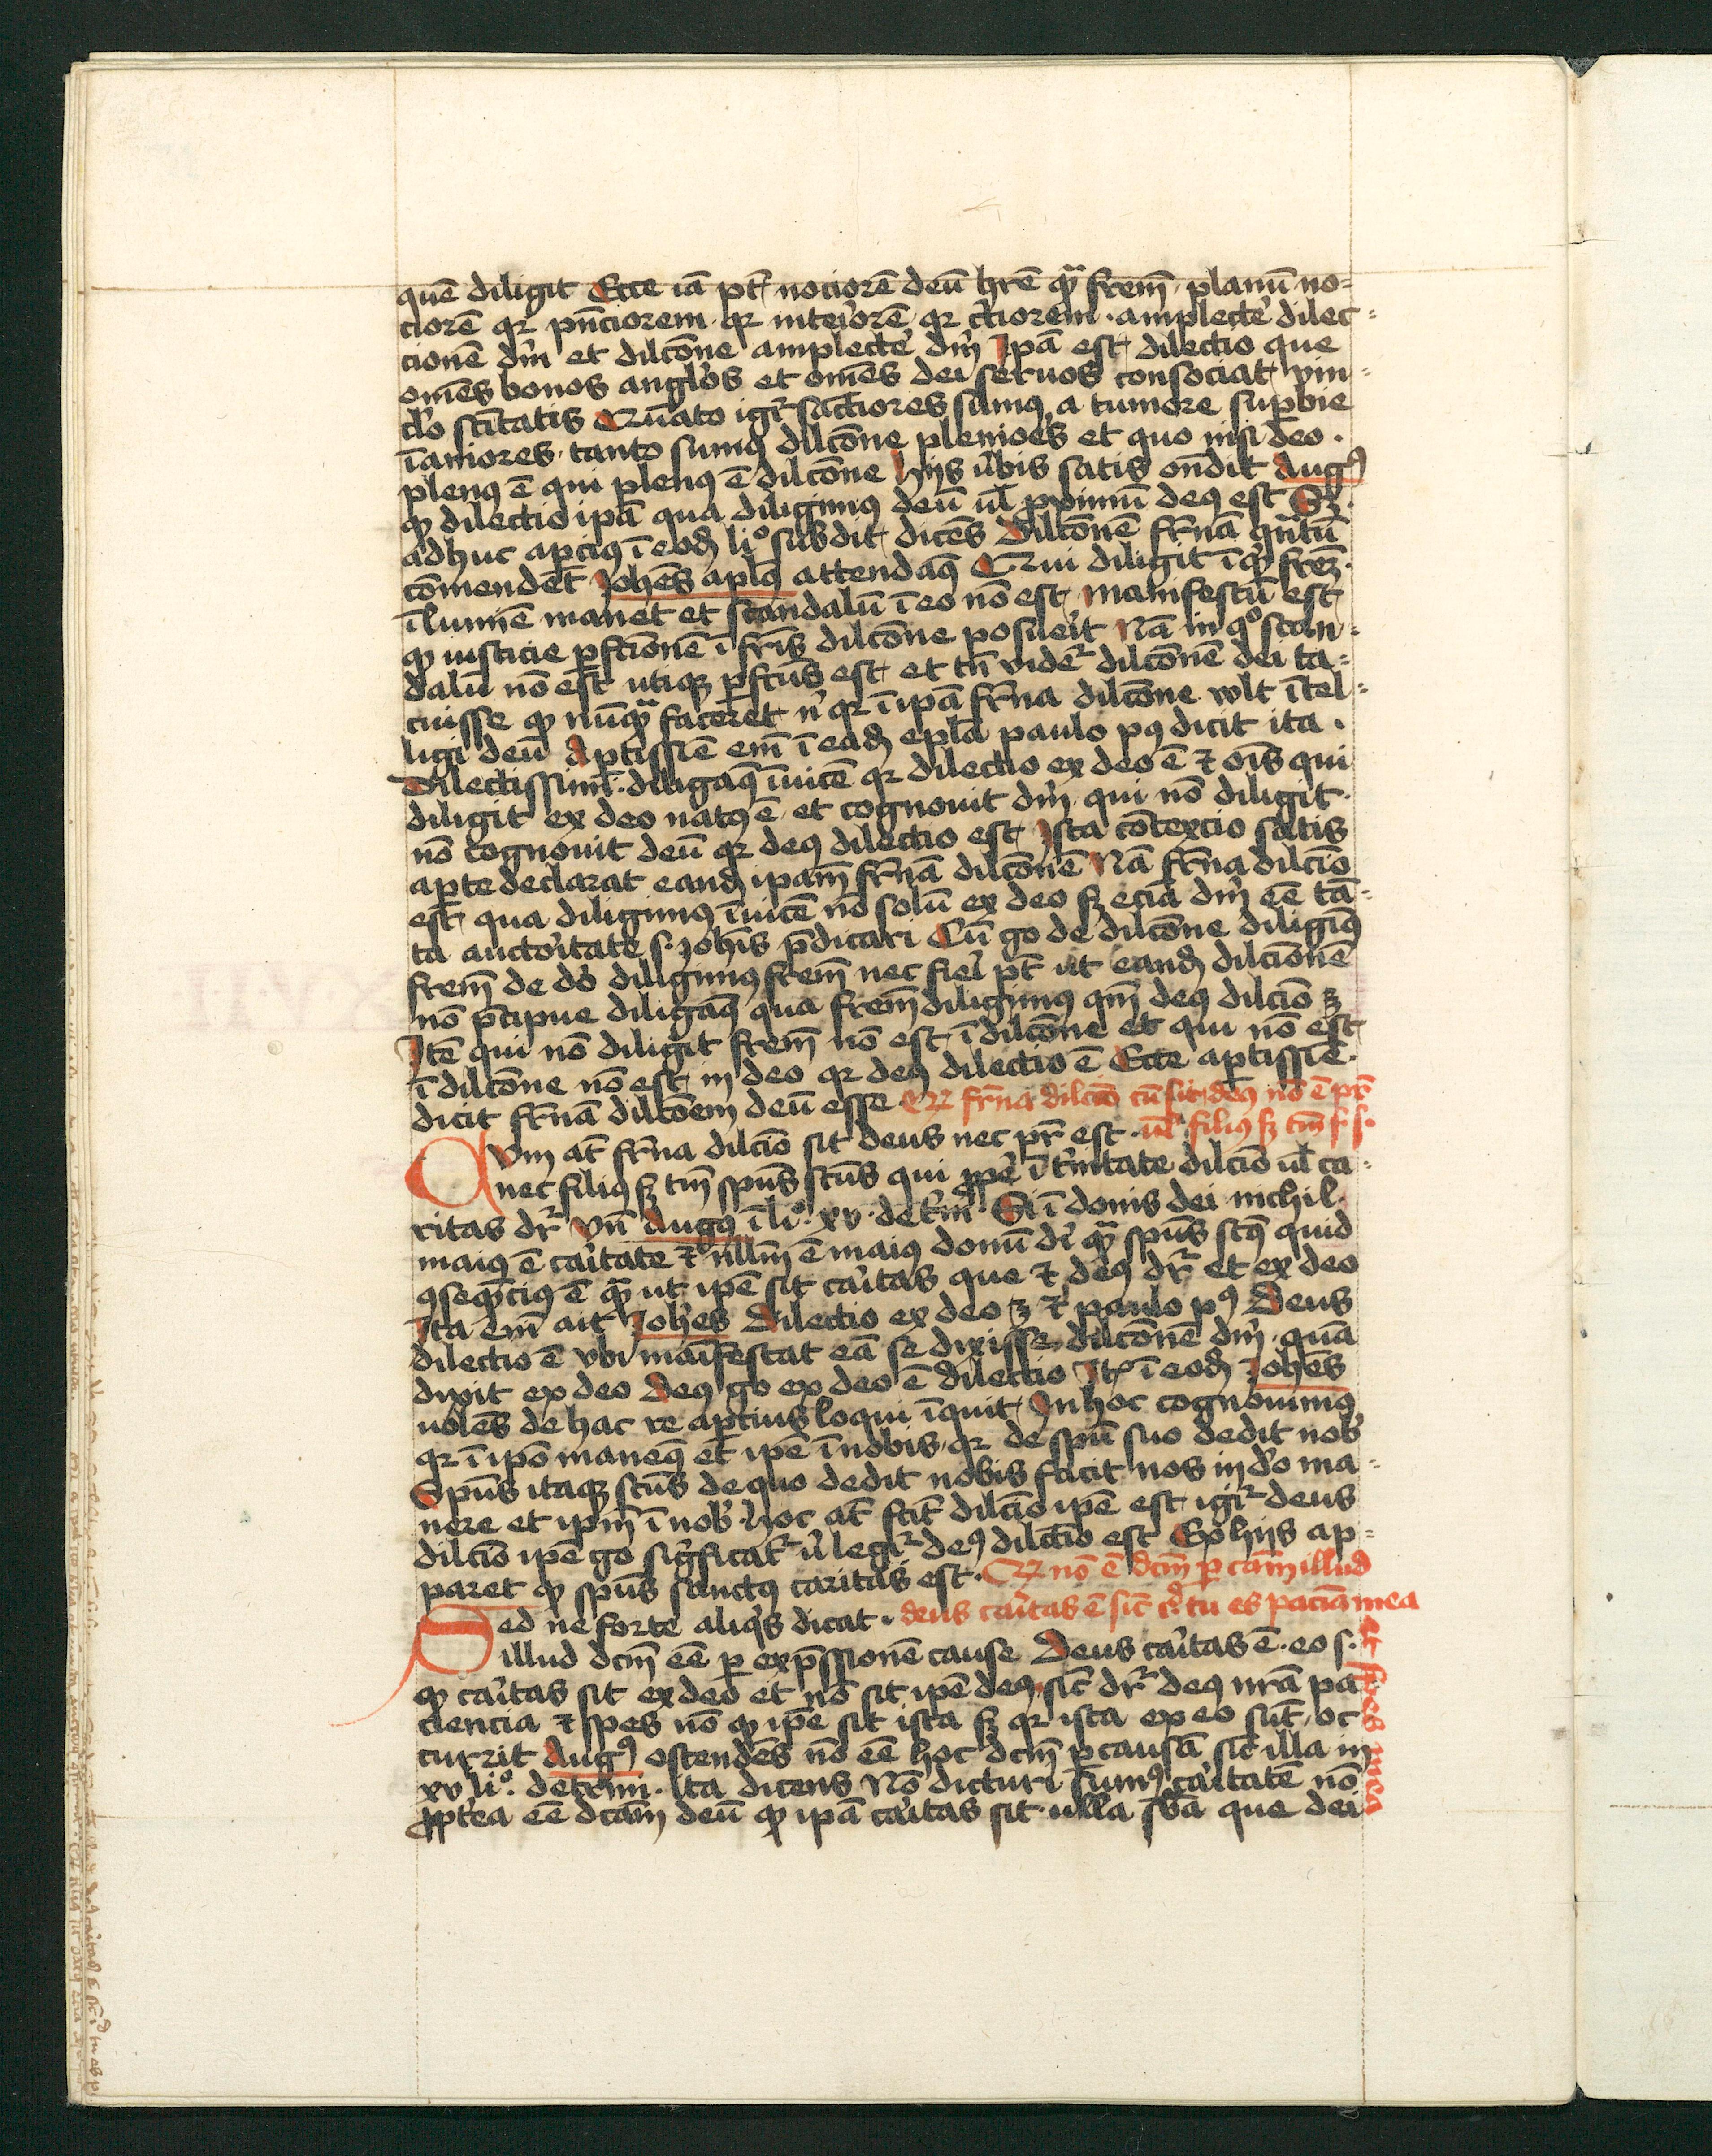 quē diligit Ecce iā pt̄ nociorē deū hr̄e qͣ frēm planū no=
ciorē qr pn̄ciorem qr interiorē qr c̄tiorem · amplecte dilec=
cionē dm̄ et dilc̄one amplecte dm̄ Ipā est dilectio que
om̄es bonos angl̓os et om̄es dei seruos consociat vin=
cl̓o sc̄itatis Qn̄ato igr̄ sāctiores sumꝰ a tumore supbie
īaniores tanto sumꝰ dilc̄one plenioēs et quo nisi deo ·
plenꝰ ē qui plenꝰ ē dilc̄one Hijs ūbis satis on̄dit Augꝰ
qꝫ dilectio ipā qua diligimꝰ deū ul̄ pximū deꝰ est Sꝫ
adhuc apciꝰ ī eodꝫ li° subdit dicēs Dilc̄onē fr̄nā qn̄tū
cōmendet Joh̄es apl̄s attendaꝰ Qui diligit īqͥt frēꝫ ·
ī lumīe manet et scandalū ī eo nō est manifestū est
qꝫ iusticie pfcīonē ī fr̄is dilc̄one posuerit Nā in q° scan=
dalū nō est utiqꝫ pfcūs est et tn̄ videt̄ dilc̄onē dei ta=
cuisse qꝫ nūqͣ faceret nͥ qr ī ipā fr̄na dilc̄one vlt ītel=
ligi deū Aptissīe em̄ ī eadꝫ epl̄a paulo pꝰ dicit ita ·
Dilectissimi · diligaꝰ īuicē qr dilectio ex deo ē ⁊ oīs qui
diligit ex deo natꝰ ē et cognouit dm̄ qui nō diligit
nō cognouit deū qr deꝰ dilectio est Ista cōtexcio satis
apte declarat eandꝫ ipam̄ fr̄nā dilc̄onē Nā fr̄na dilcīo
est qua diligimꝰ īuicē nō solū ex deo sꝫ eciā dm̄ eē tā=
ta auctoritate s· Joh̄is pdicari Cū go de dilc̄one diligimꝰ
frēm de do diligimꝰ frēm nec fieri pt̄ ut eandꝫ dilcīonē
nō p̄cipue diligaꝰ qua frēm diligimꝰ qm̄ deꝰ dilcīo ꝫ
Itē qui nō diligit frēm nō est ī dilc̄one et qui nō est
ī dilc̄one nō est in deo qr deꝰ dilectio ē Ecce aptissīe
dicit fr̄nā dilc̄oem deū esse Qꝫ fr̄na dilcīo cū sit deꝰ nō ē pr̄
Qvm at̄ fr̄na dilcīo sit deus nec pr̄ est · ul̄ filiꝰ sꝫ tm̄ s· s·
nec filiꝰ sꝫ tm̄ spūs scūs qui ppͥe ī tͥnitate dilcīo ul̄ ca=
ritas dr̄ Vn̄ Augꝰ ī li° · xv · de tͥni Si ī donis dei nichil
maiꝰ ē caͥtate ⁊ nllm̄ ē maiꝰ donū di qͣ spūs scꝰ quid
ꝯseqn̄ciꝰ ē qͣ ut ipē sit caͥtas que ⁊ deꝰ dr̄ et ex deo
Ita em̄ ait Joh̄es Dilectio ex deo ꝫ ⁊ paulo pꝰ Deus
dilectio ē vbi maīfestat eā se dixisse dilc̄onē dm̄ quā
dixit ex deo Deꝰ go ex deo ē dilectio Itꝫ ī eodꝫ Joh̄es
uolēs de hac re apcius loqui īquit In hoc cognouimꝰ
qr ī ipo maneꝰ et ipē ī nobis qr de spū suo dedit nob̓
Spūs itaqꝫ scūs de quo dedit nobis facit nos in do ma=
nere et ipm̄ ī nob̓ · Hoc at̄ fcīt dilcīo ipē est igr̄ deus
dilcīo ipē go sigͥficat̄ u̓ legr̄ deꝰ dilcīo est Ex hijs ap=
paret qꝫ spūs sanctꝰ caritas est · Qꝫ nō ē dcm̄ p cām illud
Sed ne forte aliqͥs dicat · deus caͥtas ē sic̄ r̓ tu es paciā mea
illud dcm̄ eē p expssionē cause Deus caͥtas ē · eo s· et spes mea
qꝫ caͥtas sit ex deo et nō sit ipē deꝰ sic̄ dr̄ deꝰ nr̄a pa
ciencia ⁊ spes nō qꝫ ipē sit ista sꝫ qr ista ex eo sūt oc
currit Augꝰ ostendēs nō eē hoc dcm̄ p causā sic̄ illa in
xv li° · de trini · Ita dicens Nō dicturi sumꝰ caͥtatē nō
ppͭea eē dcām deū qꝫ ipā caͥtas sit ulla sb̄a que dei